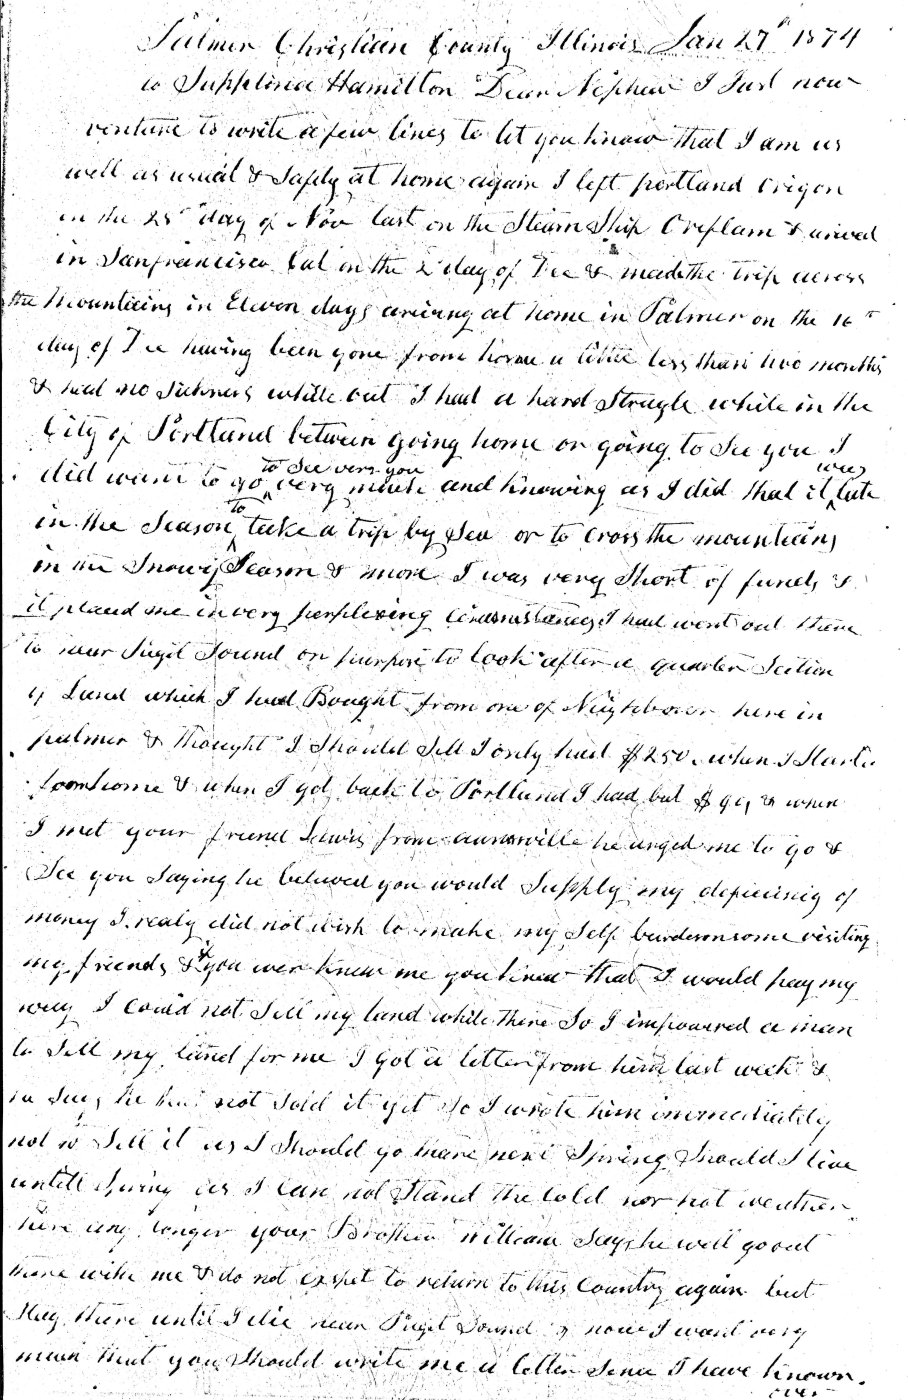 Palmer Christian County Illinois Jan 27th 1874
to Supplina Hamilton Dear Nephew I Just now
venture to write a few lines to let you know that I am us
well as usual & Safely at home again I left portland Origon
in the 25th day of Nov last on the Steam Ship Oreflam & arived
in Sanfrancisco but on the 2d day of Dec & made the trip across
the Mountains in Eleven days ariving at home in Palmer on the 16th
day of Dec having been gone from home a little less than two months
& had no Sickness while out I had a hard Strugle while in the
City of Portland between going home or going to See you I
did want to go to See very you very much and knowing as I did that it was late
in the Season to take a trip by Sea or to cross the mountains
in the Snowy Season & more I was very Short of funds &
it placed me in very perplexing circumstances I had went out there
to near Puget Sound on purpose to look after a quarter Section
of Land which I had Bought from one of Neighbours here in
palmer & thought I Should Sell I only had $250. when I Started
from home & when I got back to Portland I had but $90, & when
I met your friend Lewis from aumsville he urged me to go &
See you Saying he believed you would Supply my deficiency of
money I realy did not wish to make my Self burdensome visiting
my friends & if you ever knew me you knew that I would pay my
way I could not Sell my land while there So I impowered a man
to Sell my land for me I got a letter from him last week &
he Says he has not Sold it yet So I wrote him immediately
not to Sell it as I Should go there next Spring Should I live
untill Spring as I can not Stand the cold nor hot weather
here any longer your Brother William Says he will go out
there with me & do not expet to return to this Country again but
Stay there until I die near Puget Sound & now I want very
much that you Should write me a letter Since I have known.
over